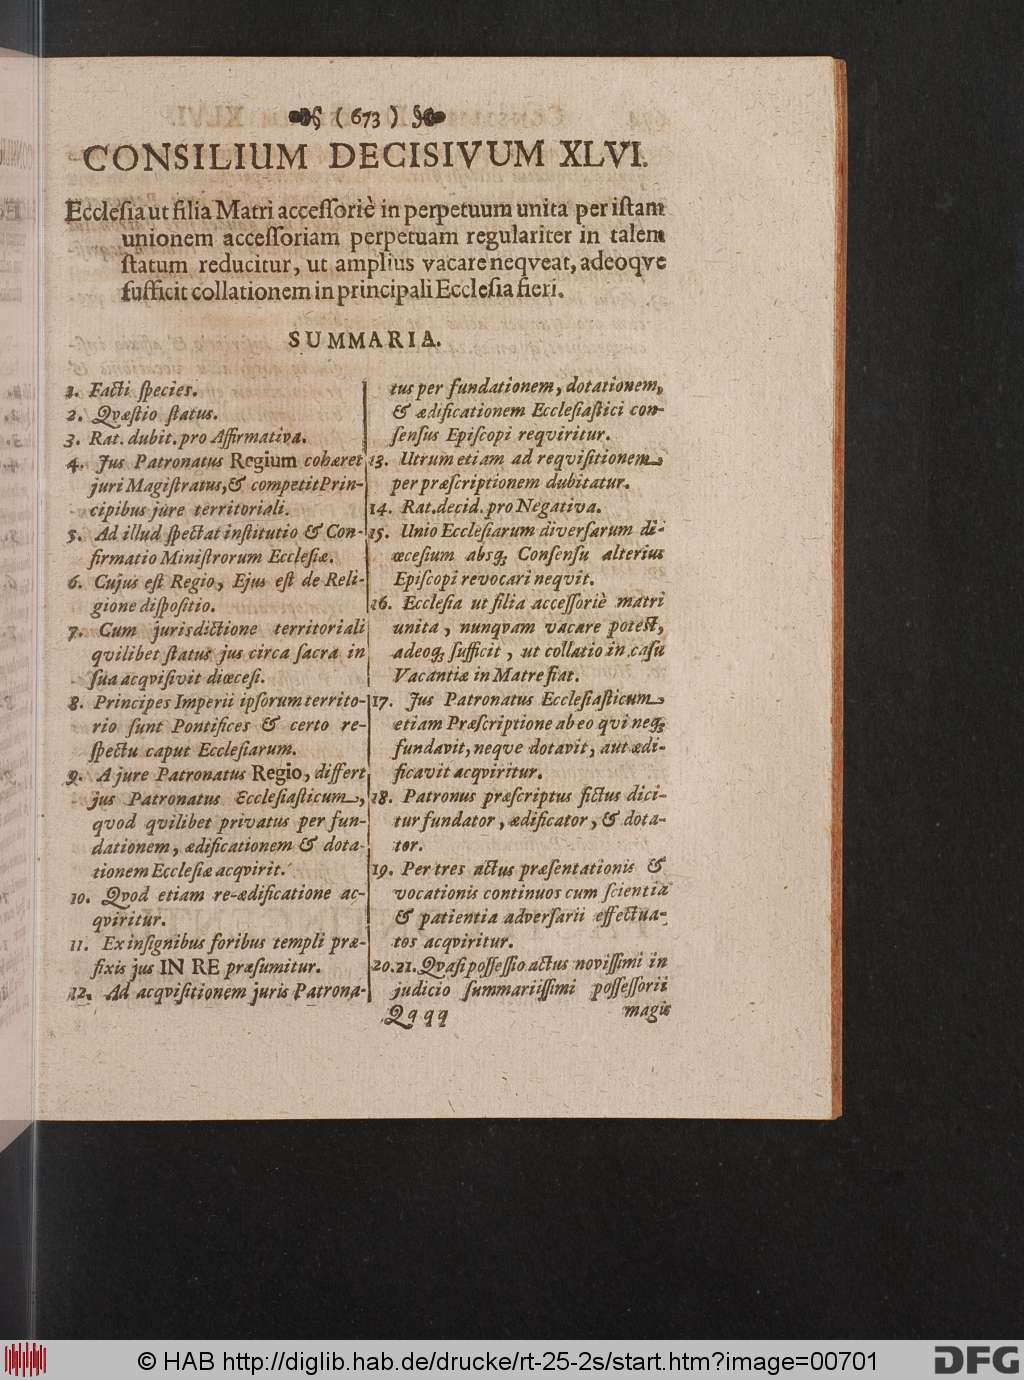 ( 673 )
CONSILIUM DECISIVUM XLVI.
Ecclesia ut filia Matri accessoriè in perpetuum unita per istam
unionem accessoriam perpetuam regulariter in talem
statum reducitur, ut amplius vacare neqveat, adeoqve
sufficit collationem in principali Ecclesia fieri.
SUMMARIA.
1. Facti species.
2. Qvæstio status.
3. Rat. dubit. pro Affirmativa.
4. Jus Patronatus Regium cohæret
juri Magistratus, & competit Prin-
cipibus jure territoriali.
5. Ad illud spectat institutio & Con-
firmatio Ministrorum Ecclesiæ.
6. Cujus est Regio, Ejus est de Reli-
gione dispositio.
7. Cum jurisdictione territoriali
qvilibet status jus circa sacra in
sua acqvisivit diœcesi.
8. Principes Imperii ipsorum territo-
rio sunt Pontifices & certo re-
spectu caput Ecclesiarum.
9. A jure Patronatus Regio, differt
jus Patronatus Ecclesiasticum,
qvod qvilibet privatus per fun-
dationem, ædificationem & dota-
tionem Ecclesiæ acqvirit.
10. Qvod etiam re-ædificatione ac-
qviritur.
11. Ex insignibus foribus templi præ-
fixis jus IN RE præsumitur.
12. Ad acqvisitionem juris Patrona-
tus per fundationem, dotationem,
& ædificationem Ecclesiastici con-
sensus Episcopi reqviritur.
13. Utrum etiam ad reqvisitionem
per præscriptionem dubitatur.
14. Rat. decid. pro Negativa.
15. Unio Ecclesiarum diversarum di-
œcesium absq; Consensu alterius
Episcopi revocari neqvit.
16. Ecclesia ut filia accessoriè matri
unita, nunqvam vacare potest,
adeoq; sufficit, ut collatio in casu
Vacantiæ in Matre fiat.
17. Jus Patronatus Ecclesiasticum
etiam Præscriptione ab eo qvi neq;
fundavit, neqve dotavit, aut ædi-
ficavit acqviritur.
18. Patronus præscriptus fictus dici-
tur fundator, ædificator, & dota-
tor.
19. Per tres actus præsentationis &
vocationis continuos cum scientia
& patientia adversarii effectua-
tos acqviritur.
20. 21. Qvasi possessio actus novissimi in
judicio summariissimi possessorii
Qqqq
magis
© HAB http://diglib.hab.de/drucke/rt-25-2s/start.htm?image=00701
DFG